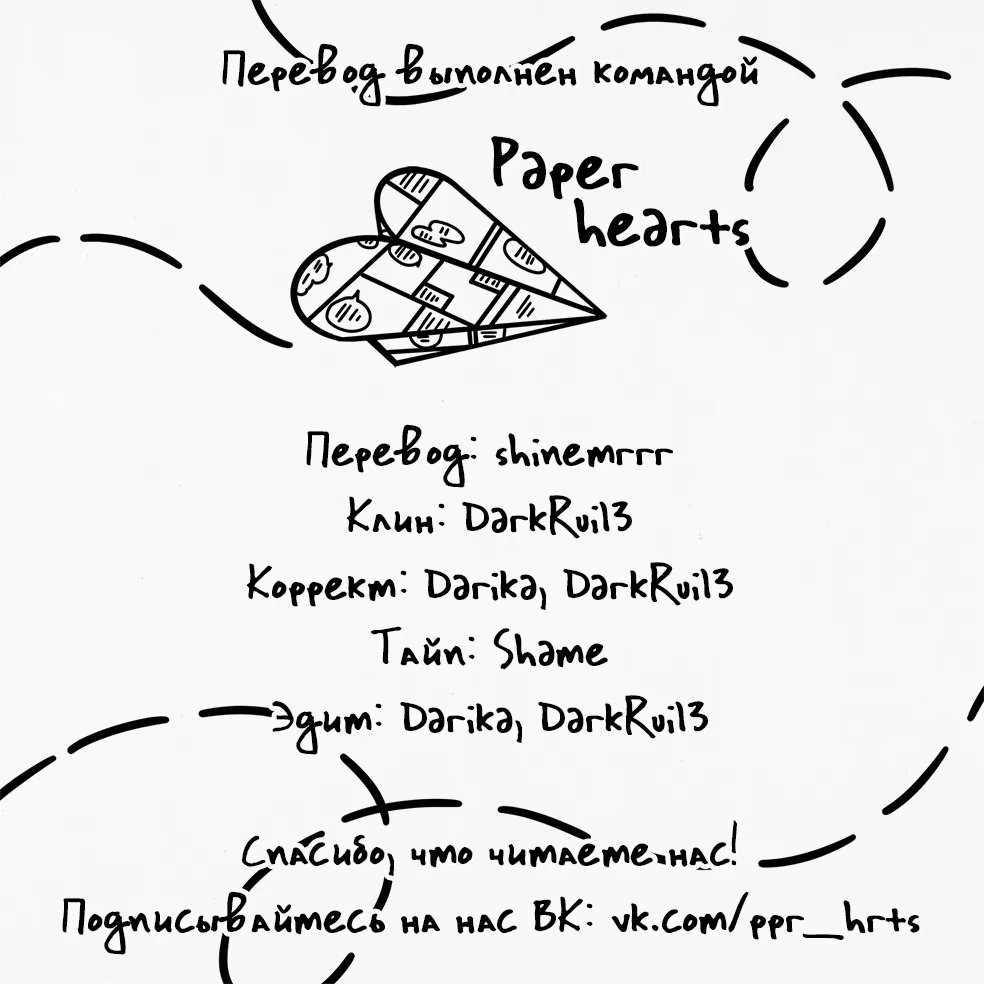 Перевод выполнен командой
Paper
hearts
Перевод: shinemrrr
Клин: DarkRui13
Коррект: Darika, DarkRui13
Тайп: Shame
Эдит: Darika, DarkRui13
Спасибо, что читаете нас!
Подписывайтесь на нас ВК: vk.com/ppr_hrts